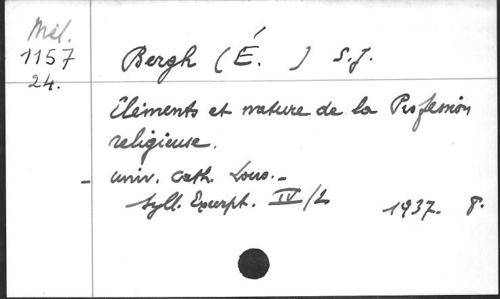 Mél.
1157
24.
Bergh (É. ) S.J.
Eléments et nature de la Profession
religieuse.
- univ. cath. Lov. -
Syll. Excerpt. IV/2 1937. 8.